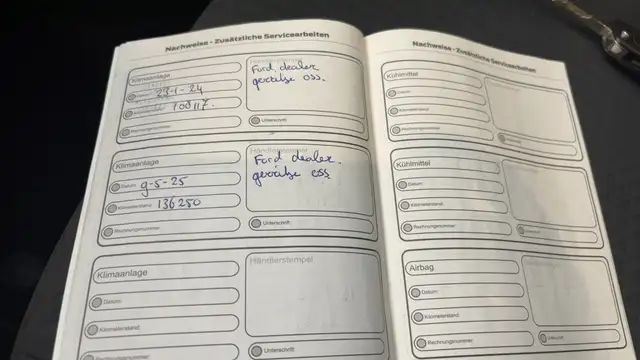 Nachweise - Zusätzliche Servicearbeiten
Klimaanlage
23-1-24
108117.
Rechnungsnummer
Ford dealer
gerritse oss.
Unterschrift
Klimaanlage
Datum 9-5-25
Kilometerstand 136250
Rechnungsnummer
Händlerstempel
Ford dealer.
gerritse oss
Unterschrift
Klimaanlage
Datum
Kilometerstand
Rechnungsnummer
Händlerstempel
Unterschrift
Nachweise - Zusätzliche Servicearbeiten
Kühlmittel
Datum
Kilometerstand
Rechnungsnummer
Kühlmittel
Datum
Kilometerstand
Rechnungsnummer
Airbag
Datum
Kilometerstand
Rechnungsnummer